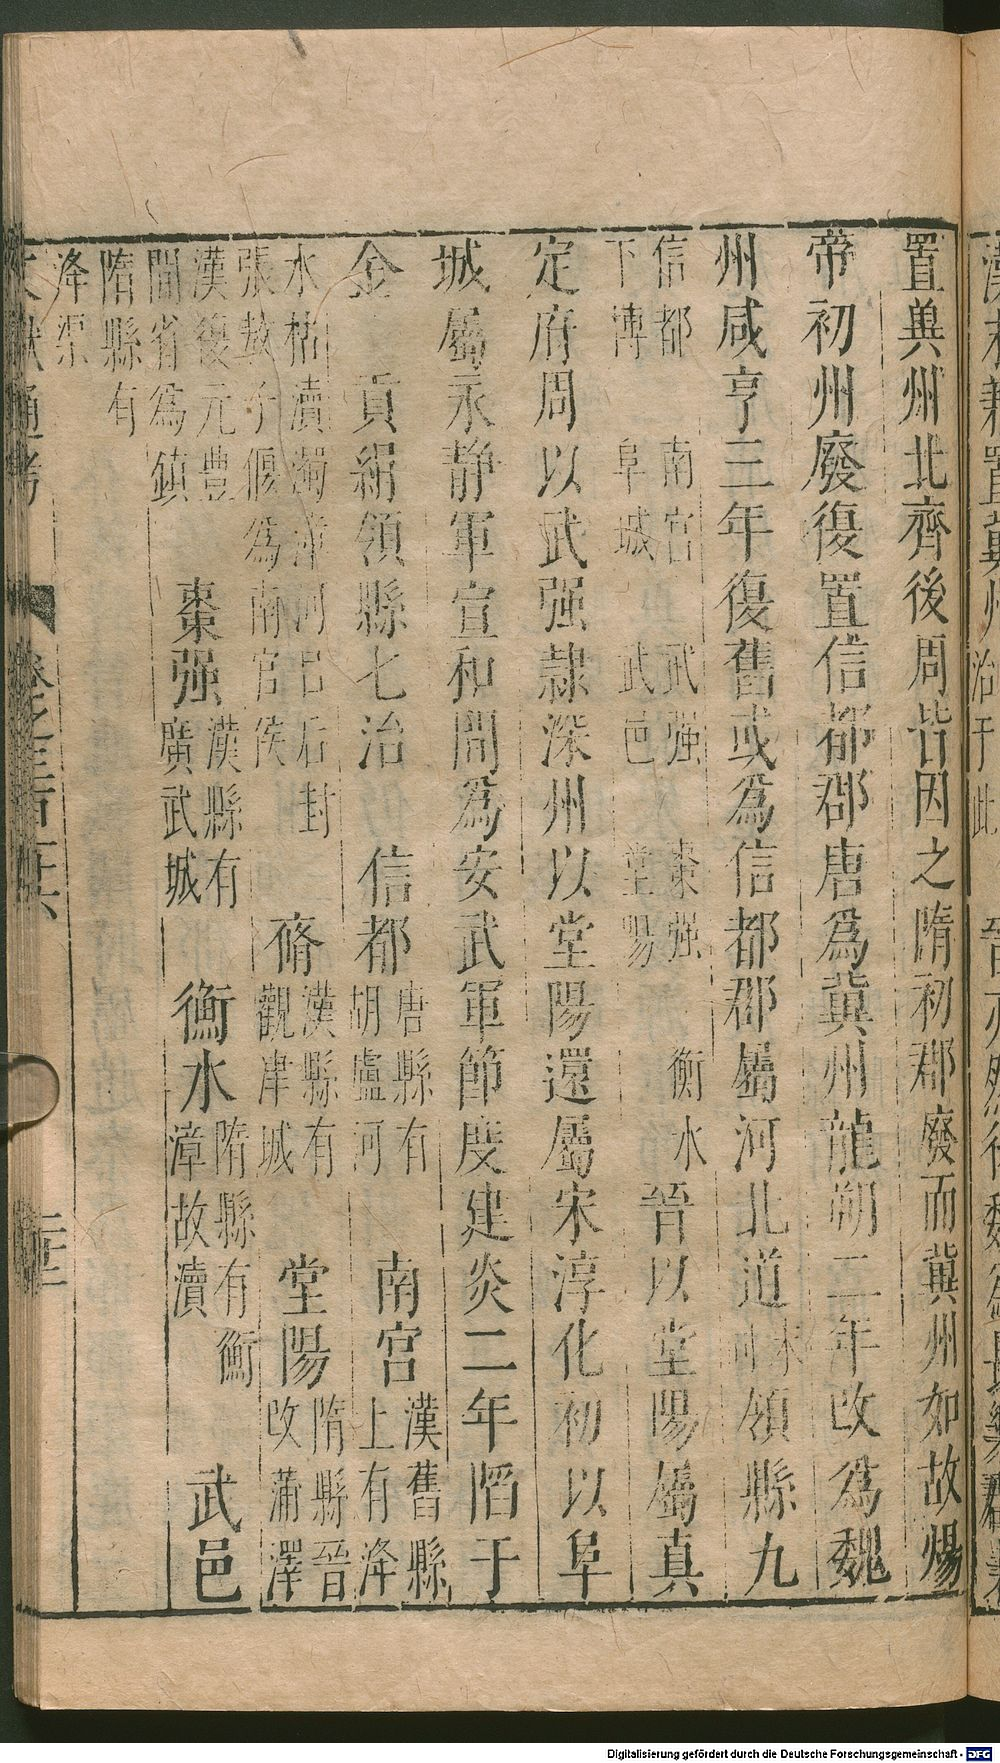 置冀州北齊後周皆因之隋初郡廢而冀州如故煬
帝初州廢復置信都郡唐爲冀州龍朔二年改爲魏
州咸亨三年復舊或爲信都郡屬河北道領縣九
信都 南宮 武强 棗强 衡水
下博 阜城 武邑 堂陽
晉以堂陽屬真
定府周以武强隷深州以堂陽還屬宋淳化初以阜
城屬永静軍宣和間爲安武軍節度建炎二年陷于
金 貢絹領縣七治 信都
唐縣有
胡盧河
南宮
漢舊縣
上有洚
水枯瀆濁漳河吕后封
張敖子偃爲南宫侯
脩
漢縣有
觀津城
堂陽
隋縣晉
改蒲澤
漢復元豊
間省爲鎮
棗强
漢縣有
廣武城
衡水
隋縣有衡
漳故瀆
武邑
隋縣有
洚渠
文獻通考
Digitalisierung gefördert durch die Deutsche Forschungsgemeinschaft - DFG